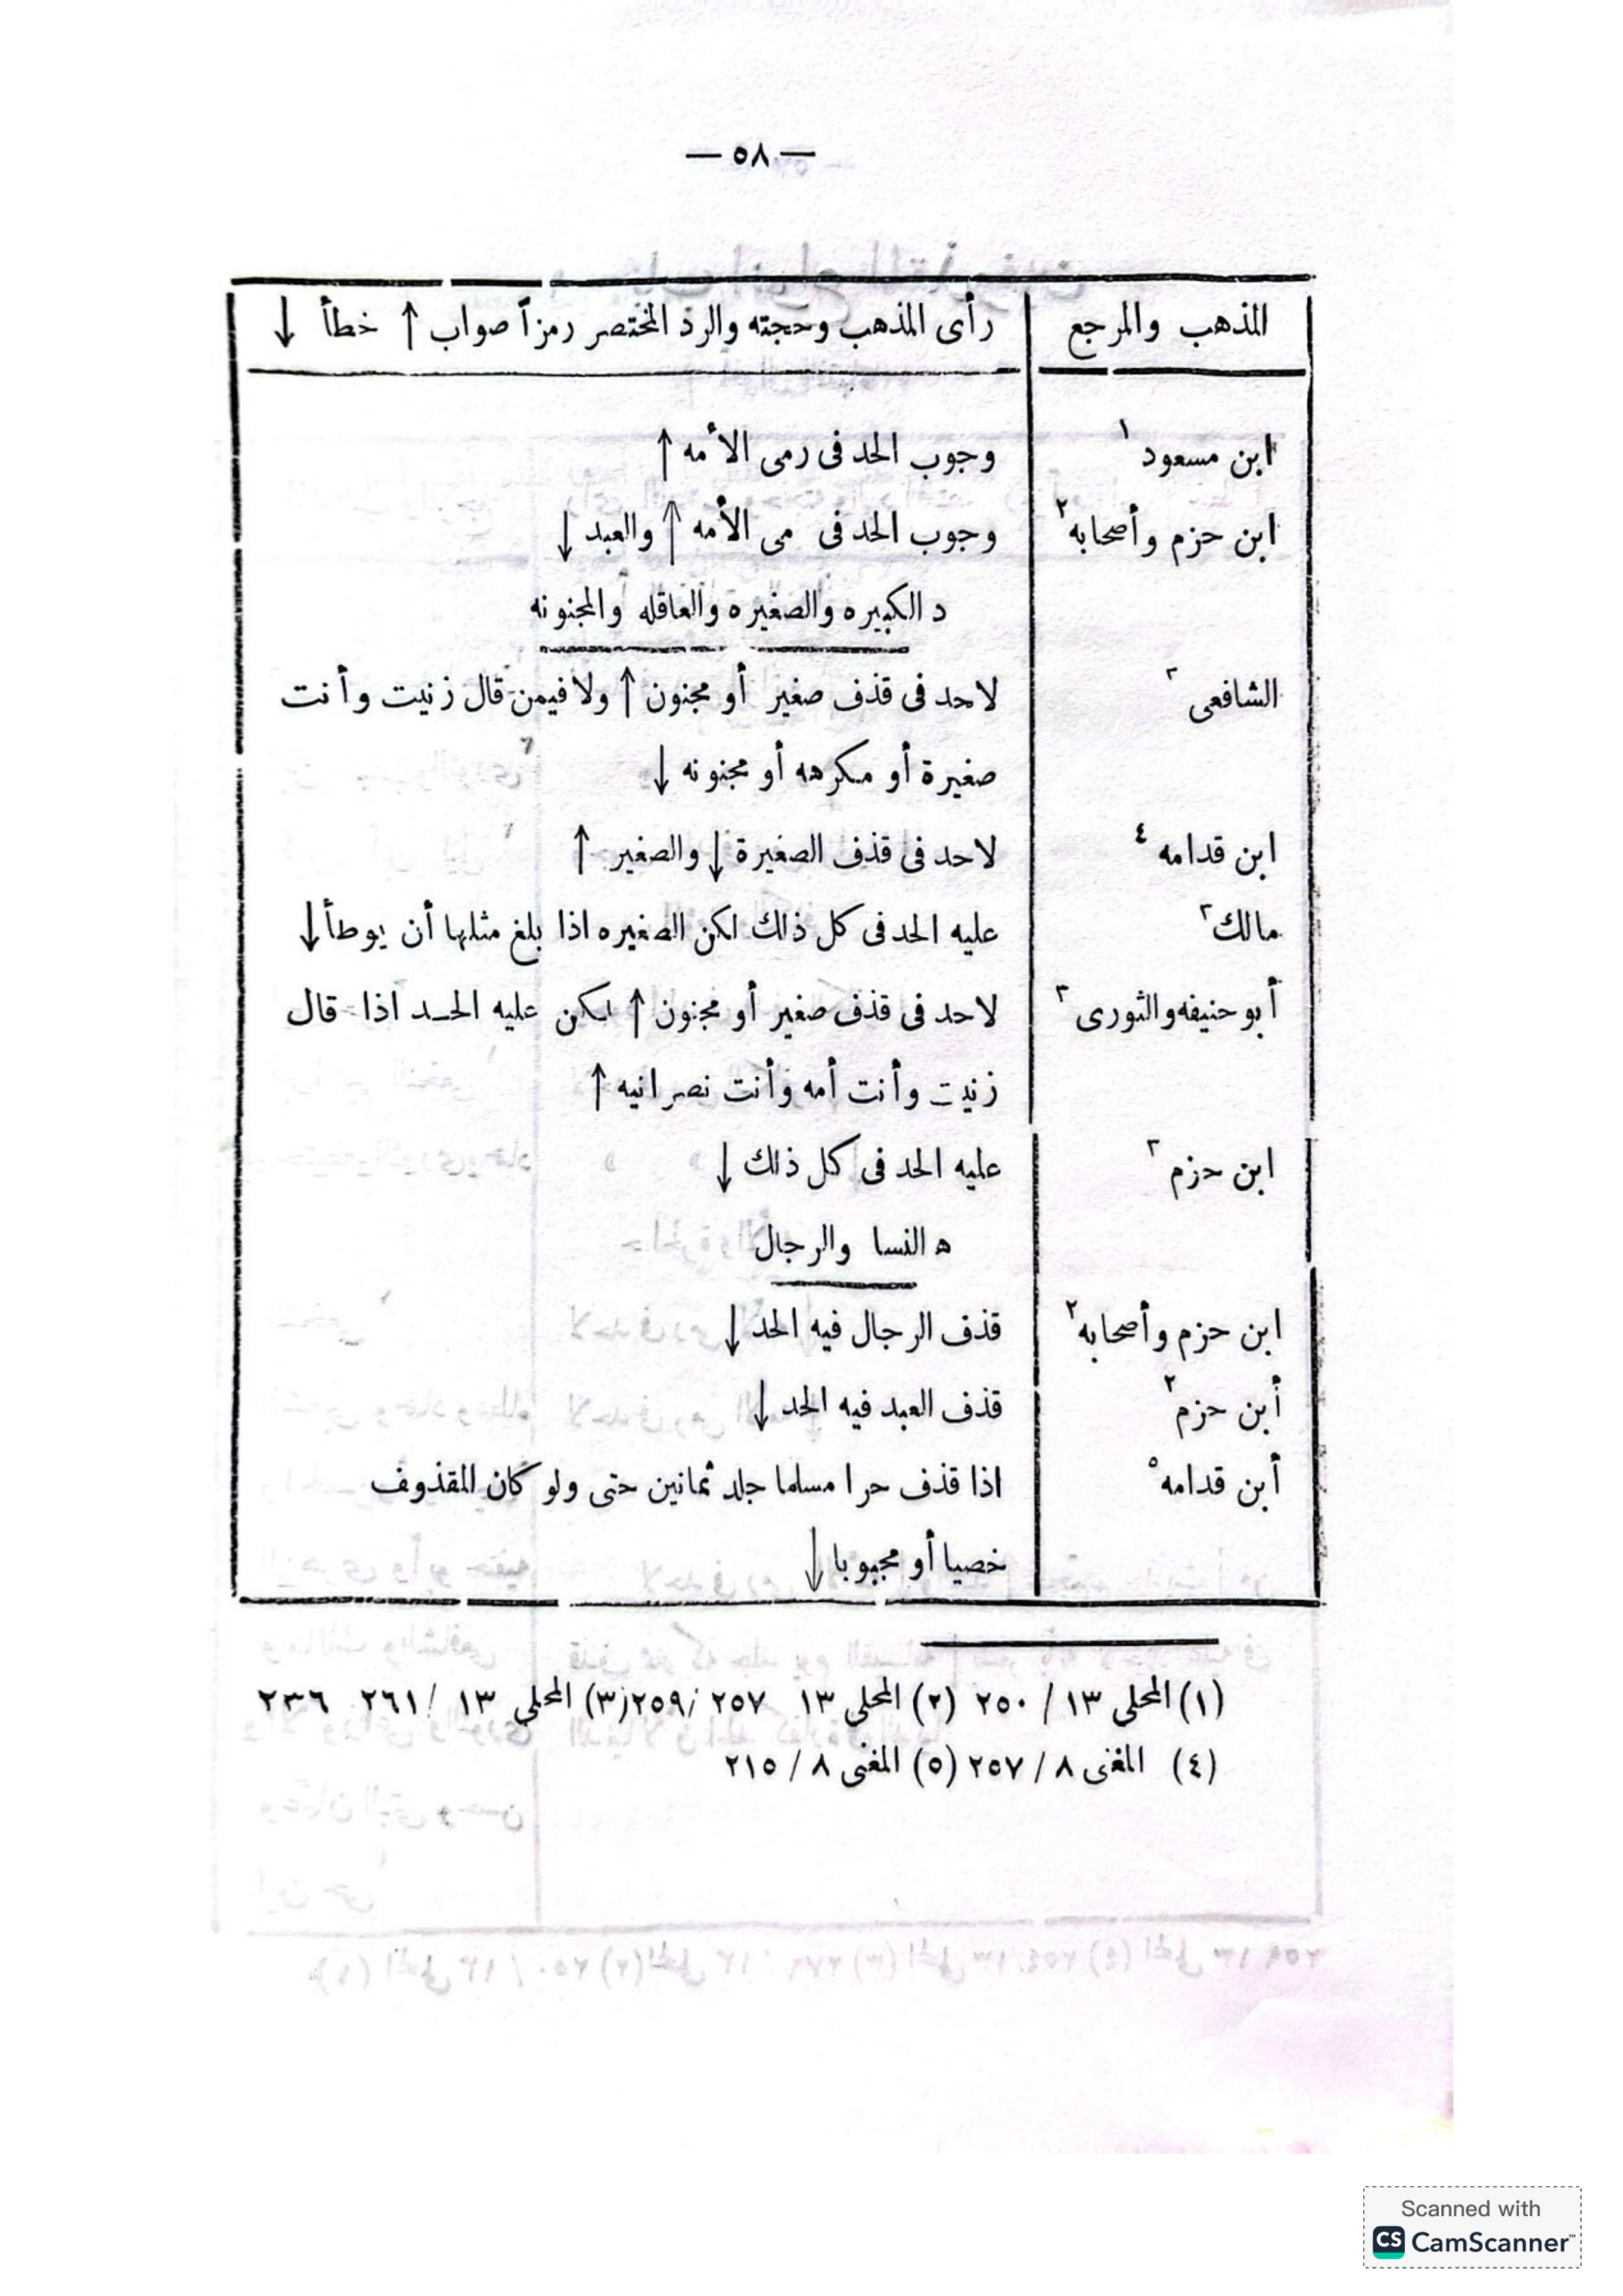 — ٥٨ —
المذهب والمرجع | رأى المذهب وحجته والرد المختصر رمزاً صواب ↑ خطأ ↓
ابن مسعود ١ | وجوب الحد فى رمى الأمه ↑
ابن حزم وأصحابه ٢ | وجوب الحد فى مى الأمه ↑ والعبد ↓
د الكبيره والصغيره والعاقله والمجنونه
الشافعى ٣ | لاحد فى قذف صغير أو مجنون ↑ ولا فيمن قال زنيت وأنت
صغيرة أو مكرهه أو مجنونه ↓
ابن قدامه ٤ | لاحد فى قذف الصغيرة ↓ والصغير ↑
مالك ٣ | عليه الحد فى كل ذلك لكن الصغيره اذا بلغ مثلها أن يوطأ ↓
أبو حنيفه والثورى ٣ | لاحد فى قذف صغير أو مجنون ↑ لكن عليه الحد اذا قال
زنيت وأنت أمه وأنت نصرانيه ↑
ابن حزم ٣ | عليه الحد فى كل ذلك ↓
ه النسا والرجال
ابن حزم وأصحابه ٢ | قذف الرجال فيه الحد ↓
أبن حزم ٢ | قذف العبد فيه الحد ↓
أبن قدامه ٥ | اذا قذف حرا مسلما جلد ثمانين حتى ولو كان المقذوف
خصيا أو مجبوبا ↓
(١) المحلى ١٣ / ٢٥٠ (٢) المحلى ١٣ ٢٥٧ / ٢٥٩ (٣) المحلى ١٣ / ٢٦١ ٢٣٦
(٤) المغنى ٨ / ٢٥٧ (٥) المغنى ٨ / ٢١٥
Scanned with
CS CamScanner™